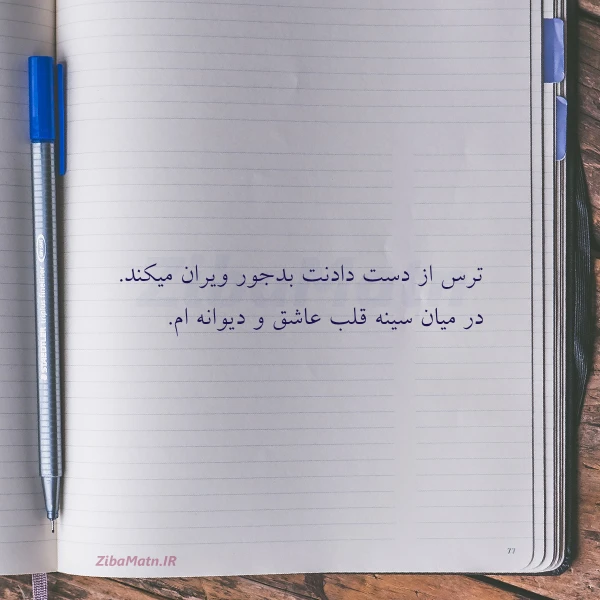 ترس از دست دادنت بدجور ویران میکند.
در میان سینه قلب عاشق و دیوانه ام.
ZibaMatn.IR
77